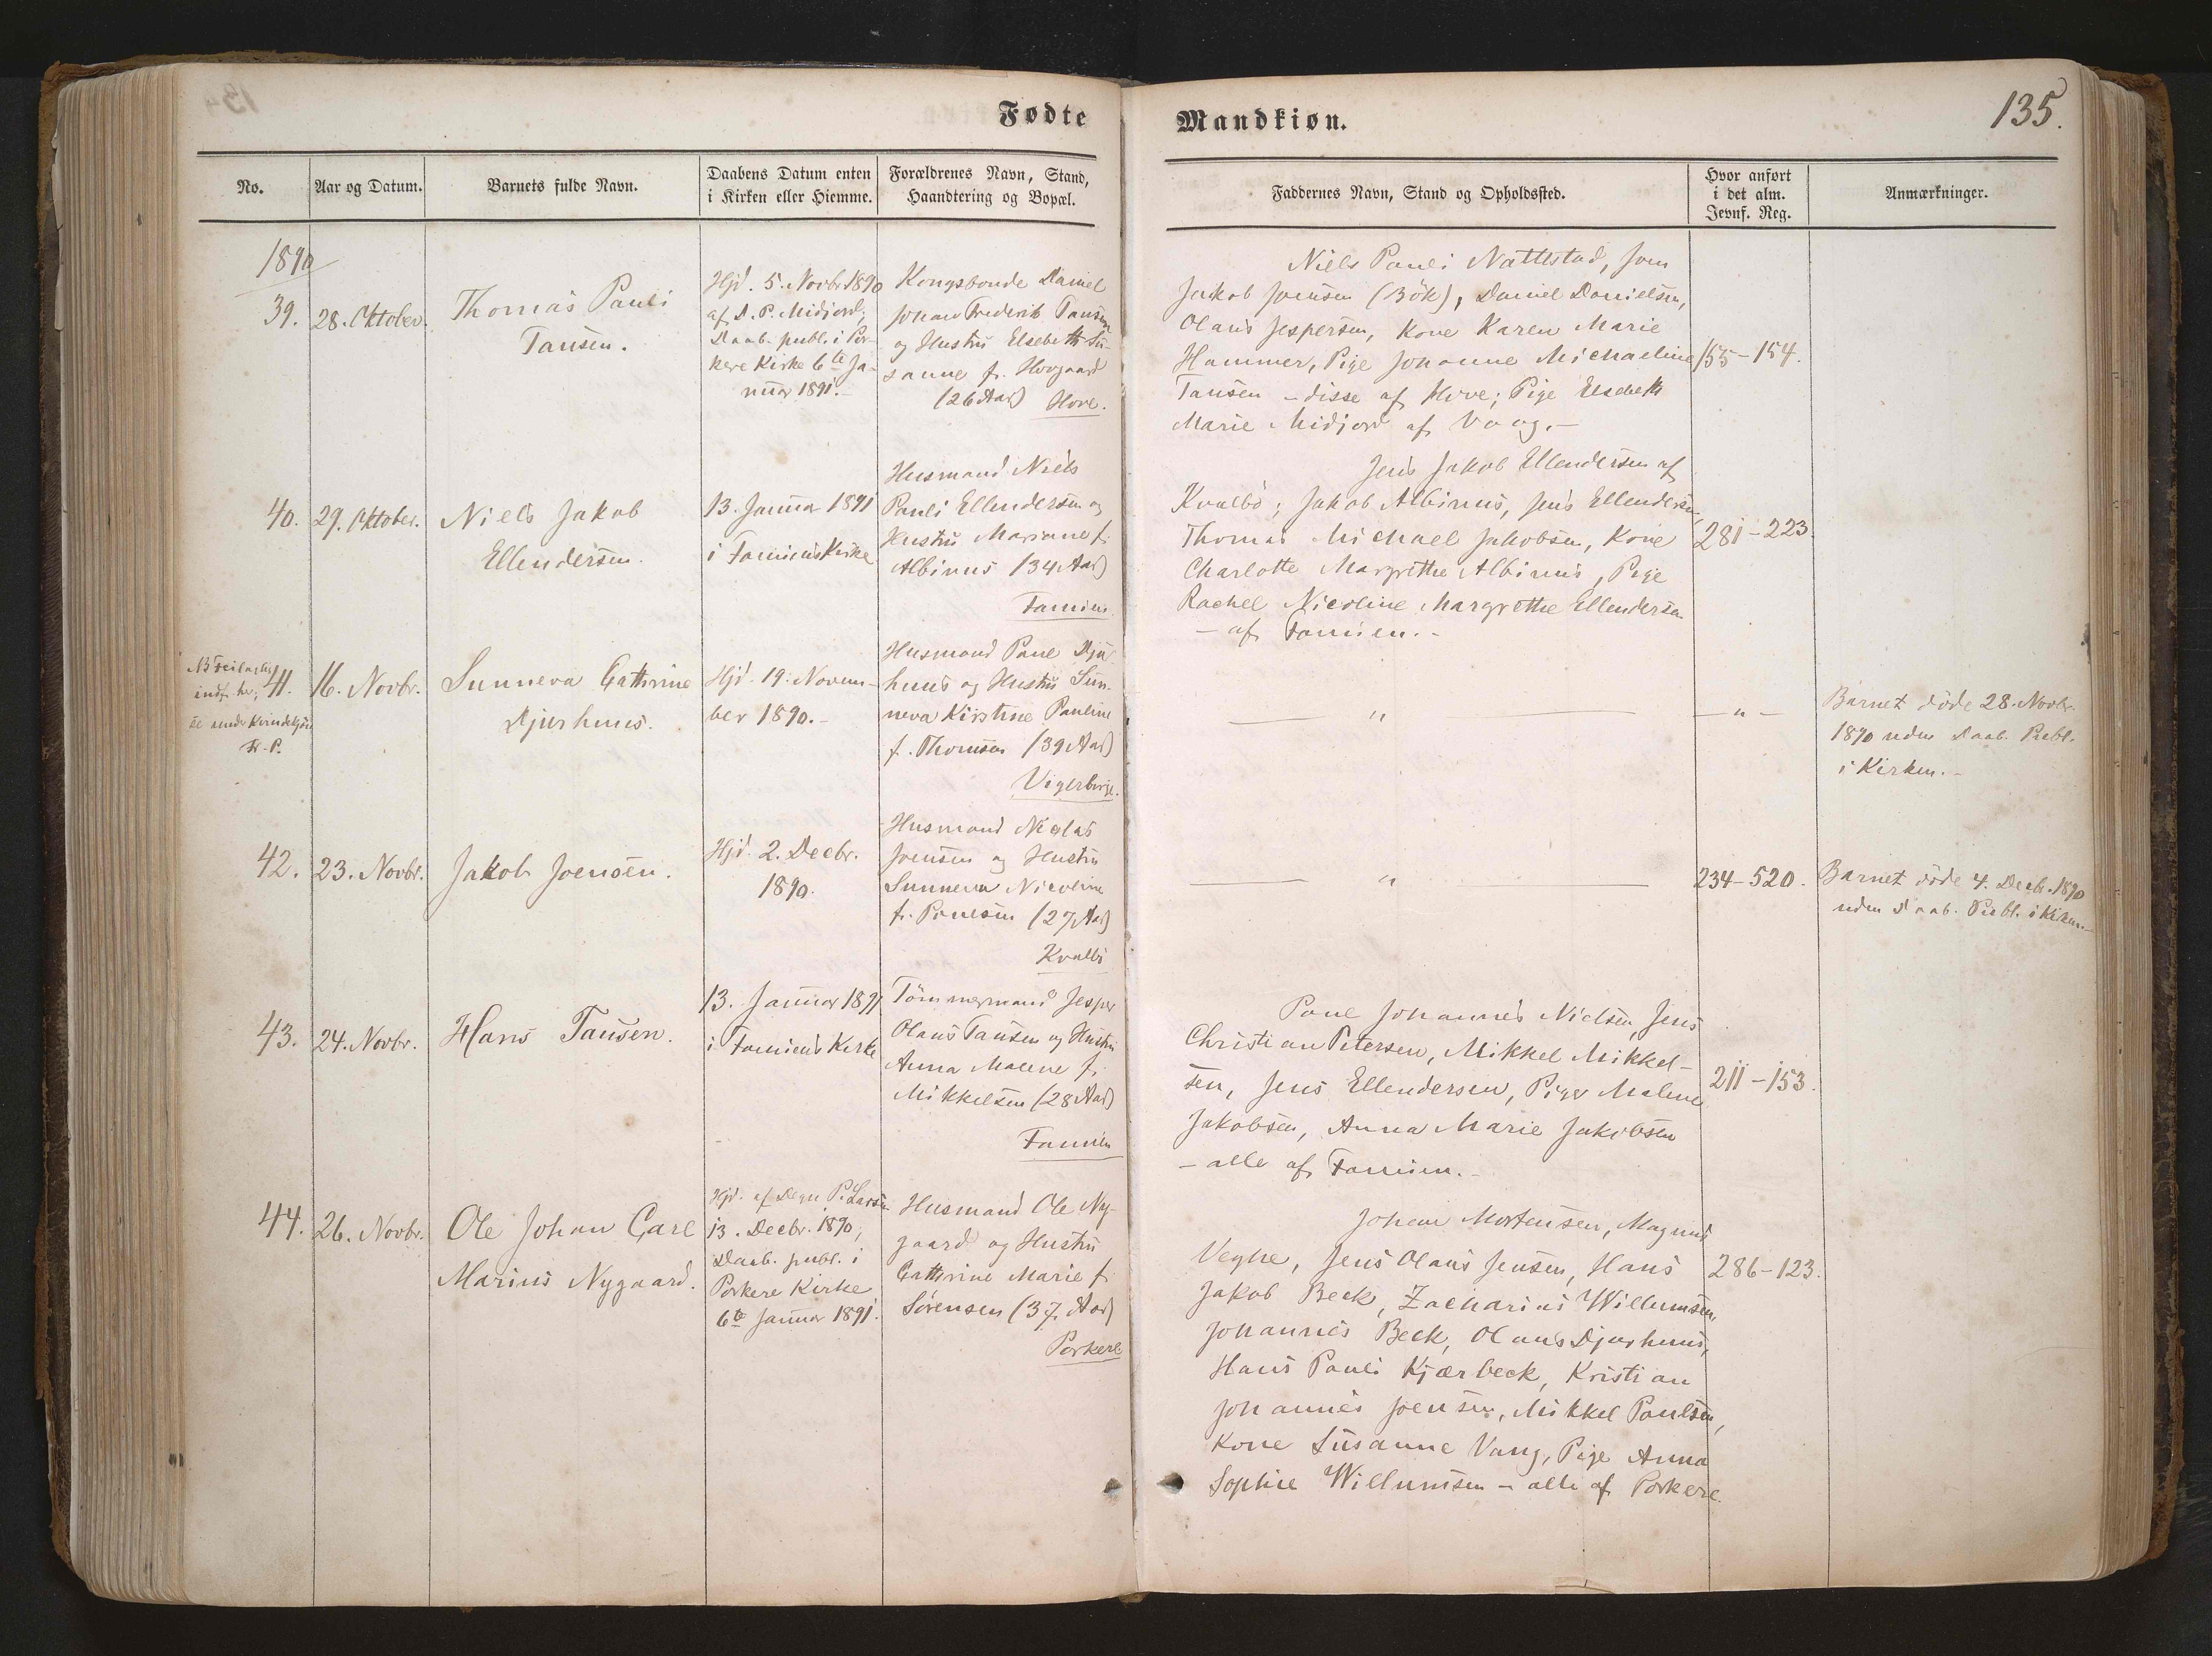 Fødte
Mandkiøn.
135.
No.
Aar og Datum.
Barnets fulde Navn.
Daabens Datum enten
i Kirken eller Hiemme.
Forældrenes Navn, Stand,
Haandtering og Bopæl.
Faddernes Navn, Stand og Opholdssted.
Hvor anført
i det alm.
Jevnf. Reg.
Anmærkninger.
1890
39.
28. Oktober.
Thomas Pauli
Tausen.
Hjd. 5. Novbr 1890
af D. P. Midjord;
Daab. publ. i Por-
kere Kirke 6te Ja-
nuar 1891.-
Kongsbonde Daniel
Johan Frederik Tausen
og Hustru Elsebeth Su-
sanne f. Hovgaard
(26 Aar) Hove.
Niels Pauli Nattestad, Joen
Jakob Joensen (Bök), Daniel Danielsen,
Olaus Jespersen, Kone Karen Marie
Hammer, Pige Johanne Michaeline
Tausen - disse af Hove; Pige Elsebeth
Marie Midjord af Vaag.-
155-154.
40.
29. Oktober.
Niels Jakob
Ellendersen.
13. Januar 1891
i Famiens Kirke
Husmand Niels
Pauli Ellendersen og
Hustru Marianne f.
Albinus (34 Aar)
Famien
Jens Jakob Ellendersen af
Kvalbø; Jakob Albinus, Jens Ellendersen,
Thomas Michael Jakobsen, Kone
Charlotte Margrethe Albinus, Pige
Rachel Nicoline Margrethe Ellendersen
- af Famien.-
281-223.
NB Feilagtig
indf. her;
se under Kvindekjøn
41.
16. Novbr.
Sunneva Cathrine
Djurhuus.
Hjd. 19. Novem-
ber 1890.-
Husmand Poul Dju-
huus og Hustru Sun-
neva Kirstine Pauline
f. Thomsen (39 Aar)
Vigerbirge.
"
- " -
Barnet døde 28. Novbr.
1890 uden Daab. Publ.
i Kirken.-
42.
23. Novbr.
Jakob Joensen.
Hjd. 2. Decbr.
1890.
Husmand Niclas
Joensen og Hustru
Sunneva Nicoline
f. Poulsen (27 Aar)
Kvalbø
"
234-520.
Barnet døde 4. Decbr. 1890
uden Daab. Publ. i Kirken.-
43.
24. Novbr.
Hans Tausen.
13. Januar 1891
i Famiens Kirke
Tømmermand Jesper
Olaus Tausen og Hustru
Anna Malene f.
Mikkelsen (28 Aar)
Famien
Poul Johannes Nielsen, Jens
Christian Petersen, Mikkel Mikkel-
sen, Jens Ellendersen, Piger Malene
Jakobsen, Anna Marie Jakobsen
- alle af Famien.-
211-153.
44.
26. Novbr.
Ole Johan Carl
Marius Nygaard.
Hjd. af Degn P. Larsen
13. Decbr. 1890;
Daab. publ. i
Porkere Kirke
6te Januar 1891.
Husmand Ole Ny-
gaard og Hustru
Cathrine Marie f.
Sørensen (37 Aar)
Porkere
Johan Mortensen, Magnus
Veyhe, Jens Olaus Jensen, Hans
Jakob Beck, Zacharias Willumsen,
Johannes Beck, Olaus Djurhuus,
Hans Pauli Kjærbeck, Kristian
Johannes Joensen, Mikkel Poulsen,
Kone Susanne Vang, Pige Anna
Sophie Willumsen - alle af Porkere.
286-123.